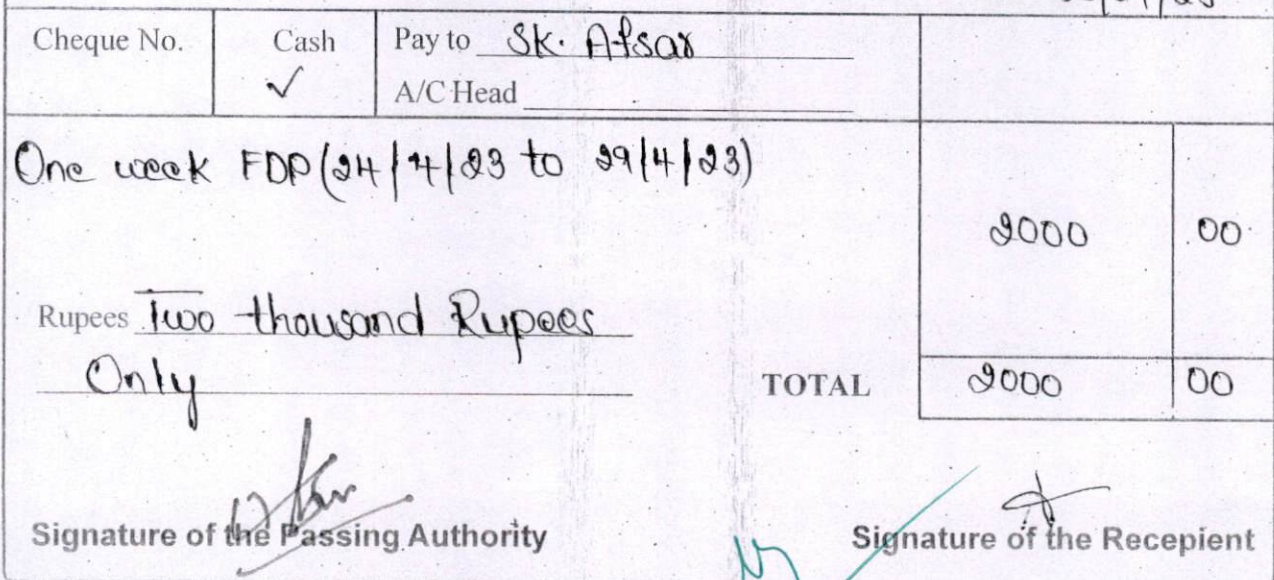 Cheque No. Cash Pay to Sk. Afsar
✓ A/C Head
One week FDP (24/4/23 to 29/4/23)
2000 00
Rupees Two thousand Rupees
Only
TOTAL 2000 00
Signature of the Passing Authority Signature of the Recepient